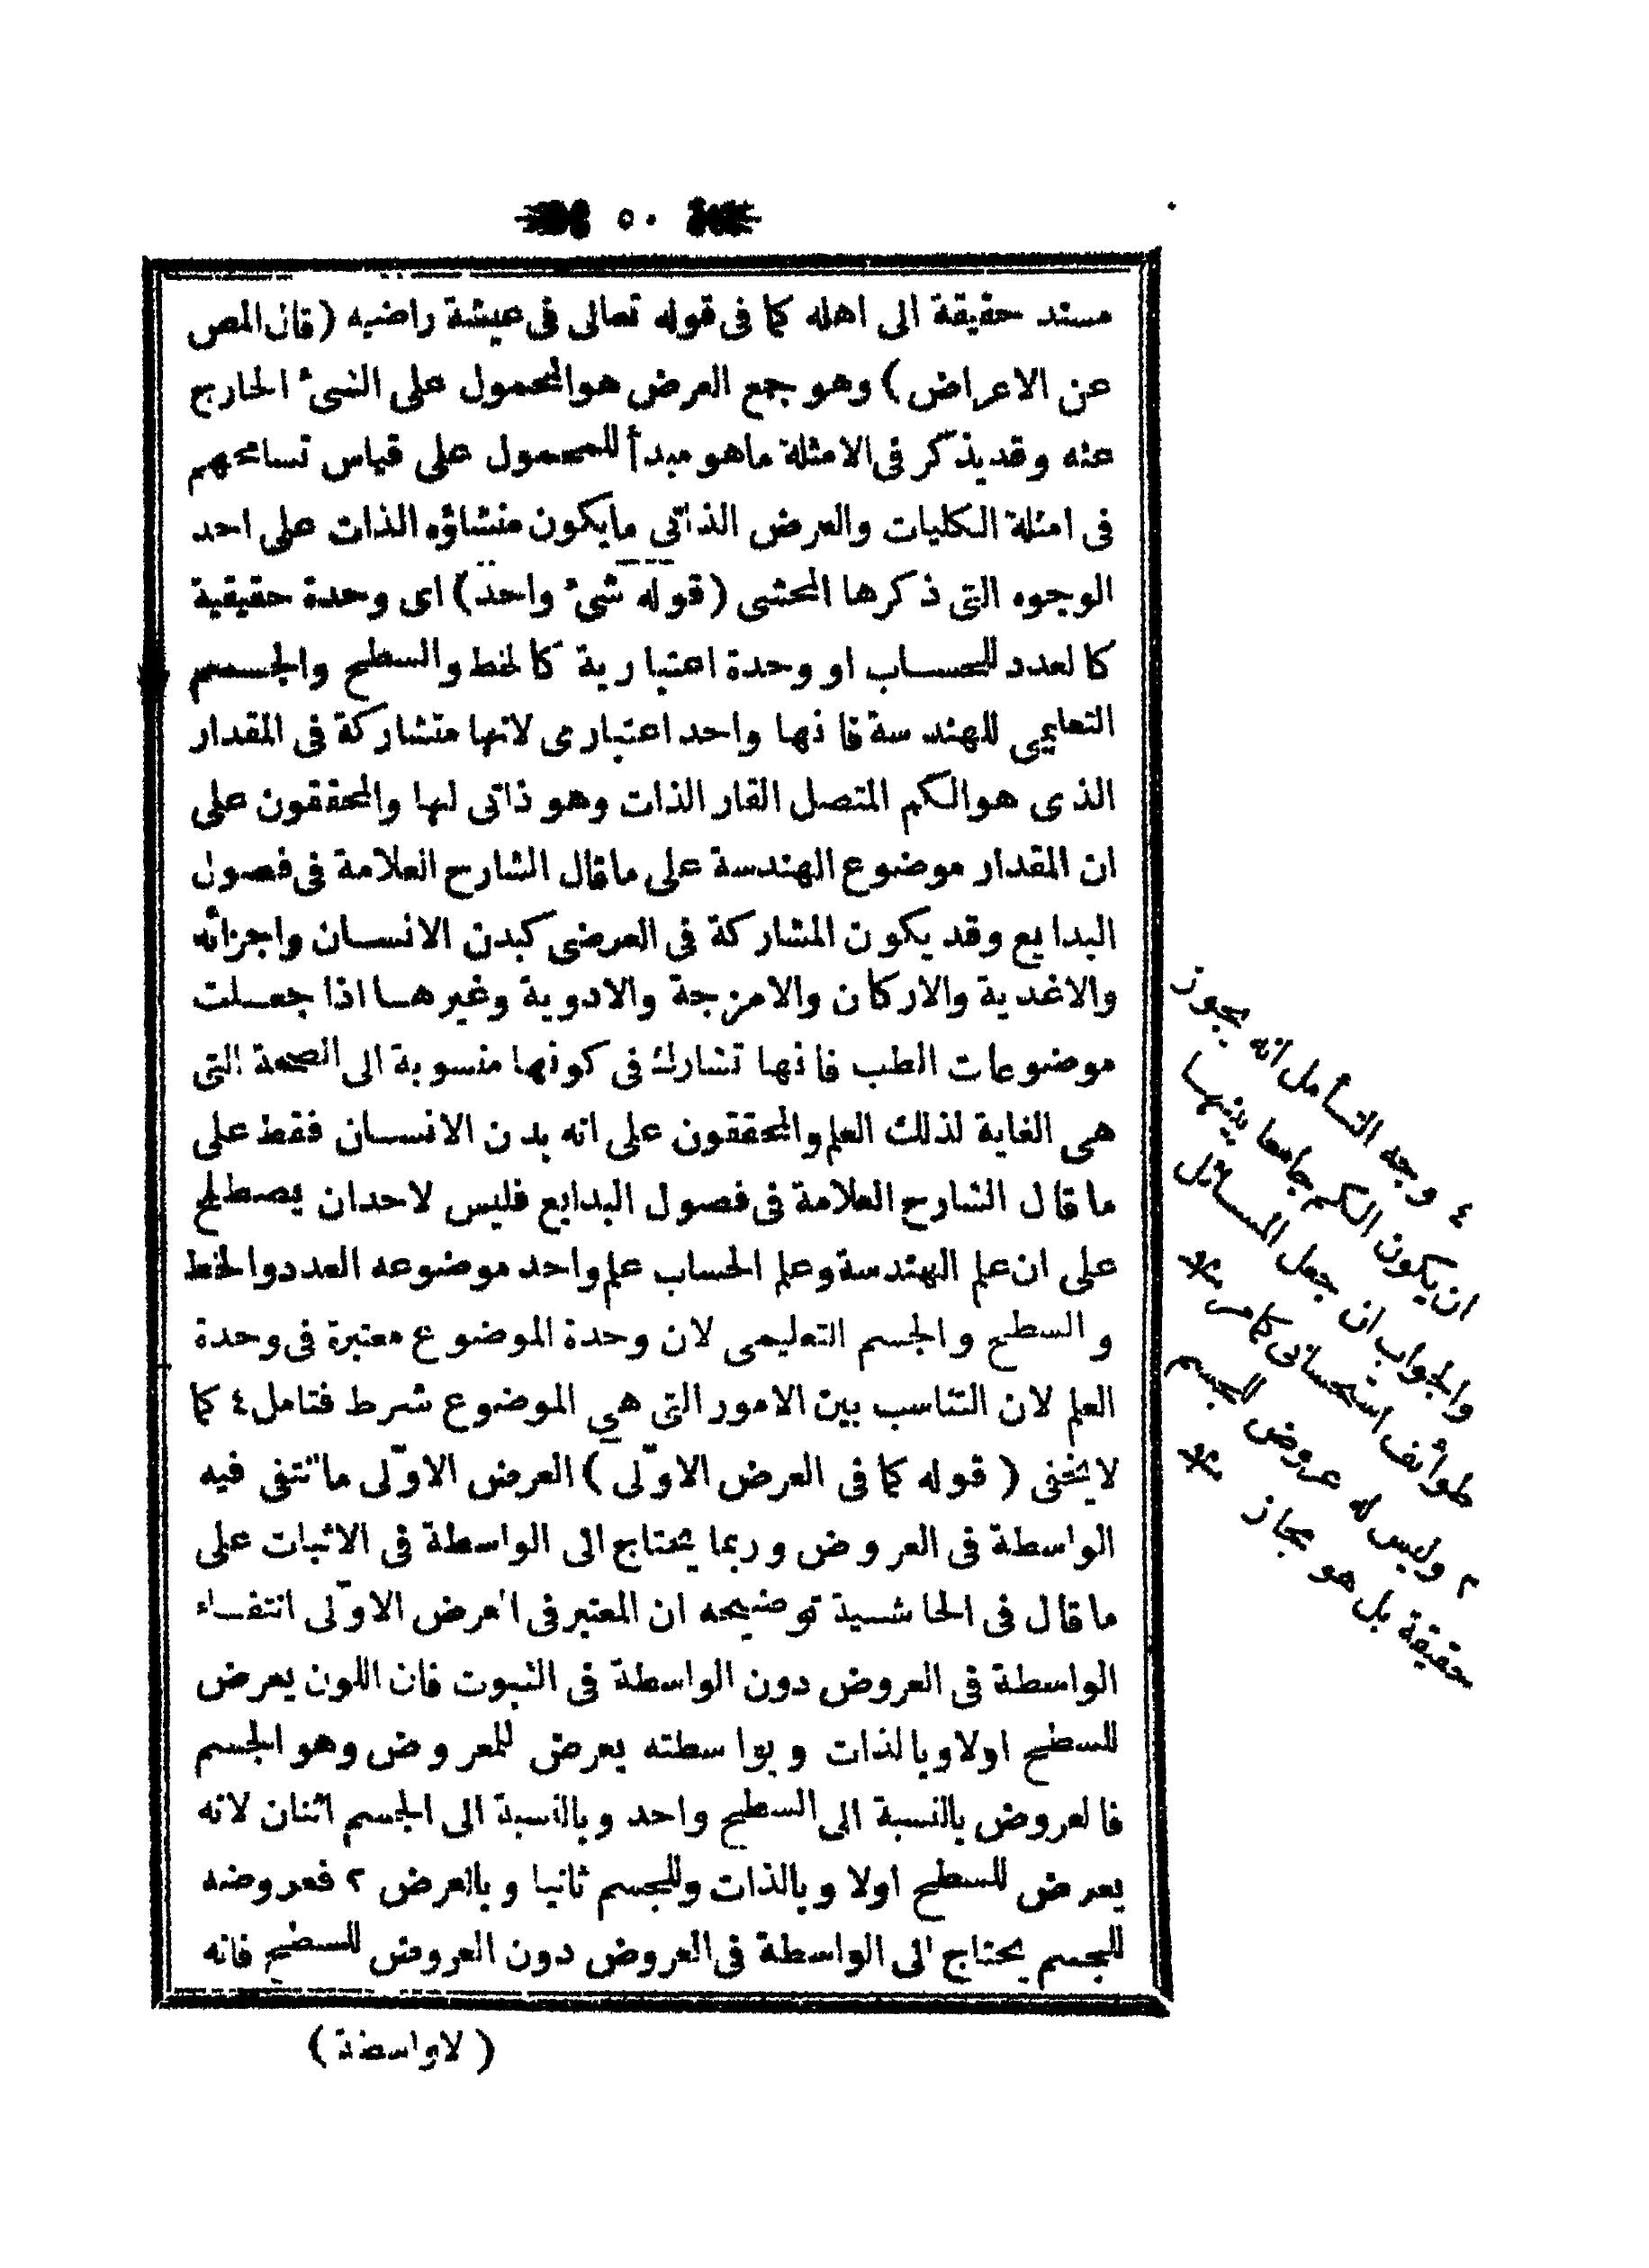 ٥٠
مسند حقيقة الى اهله كما فى قوله تعالى فى عيشة راضيه (قال المص
عن الاعراض) وهو جمع العرض هو المحمول على الشىء الخارج
عنه وقد يذكر فى الامثلة ماهو مبدأ للمحمول على قياس تسامحهم
فى امثلة الكليات والعرض الذاتى مايكون منشاؤه الذات على احد
الوجوه التى ذكرها المحشى (قوله شىء واحد) اى وحدة حقيقية
كالعدد للحساب او وحدة اعتبارية كالخط والسطح والجسم
التعليمى للهندسة فانها واحد اعتبارى لانها متشاركة فى المقدار
الذى هو الكم المتصل القار الذات وهو ذاتى لها والمحققون على
ان المقدار موضوع الهندسة على ماقال الشارح العلامة فى فصول
البدايع وقد يكون المشاركة فى العرضى كبدن الانسان واجزائه
والاغدية والاركان والامزجة والادوية وغيرها اذا جعلت
موضوعات الطب فانها تشارك فى كونها منسوبة الى الصحة التى
هى الغاية لذلك العلم والمحققون على انه بدن الانسان فقط على
ماقال الشارح العلامة فى فصول البدايع فليس لاحدان يصطلح
على ان علم الهندسة وعلم الحساب علم واحد موضوعه العدد والخط
والسطح والجسم التعليمى لان وحدة الموضوع معتبرة فى وحدة
العلم لان التناسب بين الامور التى هى الموضوع شرط فتامل ٤ كما
لايخفى (قوله كما فى العرض الاوّلى) العرض الاوّلى ماانتفى فيه
الواسطة فى العروض وربما يحتاج الى الواسطة فى الاثبات على
ماقال فى الحاشية توضيحه ان المعتبر فى العرض الاوّلى انتفاء
الواسطة فى العروض دون الواسطة فى الثبوت فان اللون يعرض
للسطح اولا وبالذات وبواسطته يعرض للمعروض وهو الجسم
فالعروض بالنسبة الى السطح واحد وبالنسبة الى الجسم اثنان لانه
يعرض للسطح اولا وبالذات وللجسم ثانيا وبالعرض ٢ فعروضه
للجسم يحتاج الى الواسطة فى العروض دون العروض للسطح فانه
(لاواسطة)
٤ وجه التأمل انه يجوز
ان يكون الكم جامعا بينها
والجواب ان جعل المسائل
طوائف استحسانى كامر ﷾
٢ وليس له عروض للجسم
حقيقة بل هو مجاز ﷾